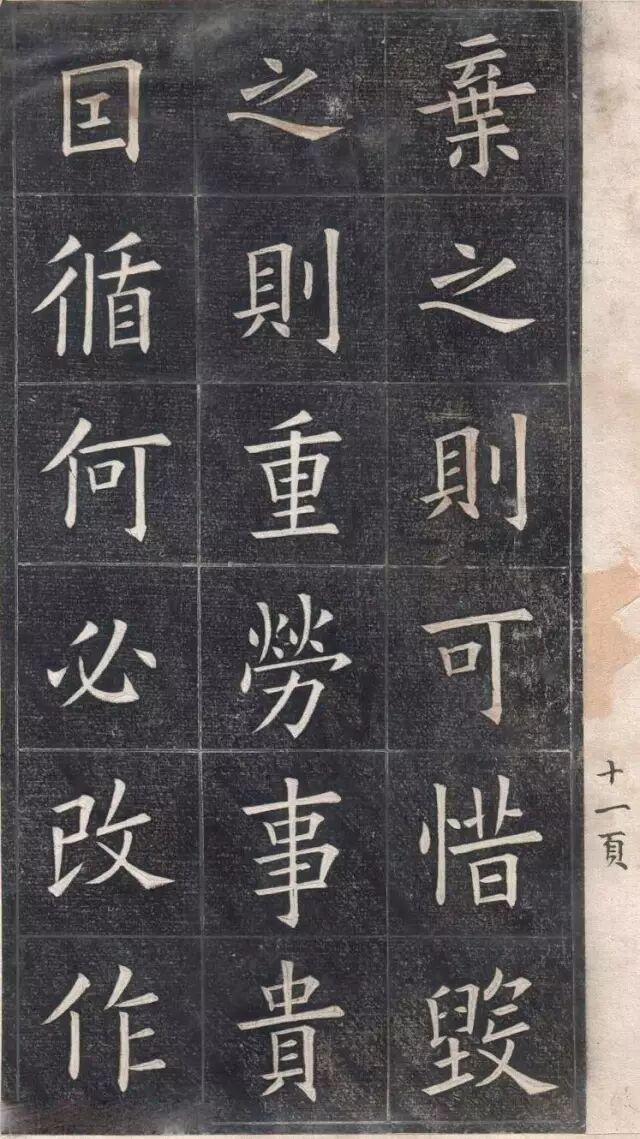 棄之則可惜毀
之則重勞事貴
因循何必改作
十一頁